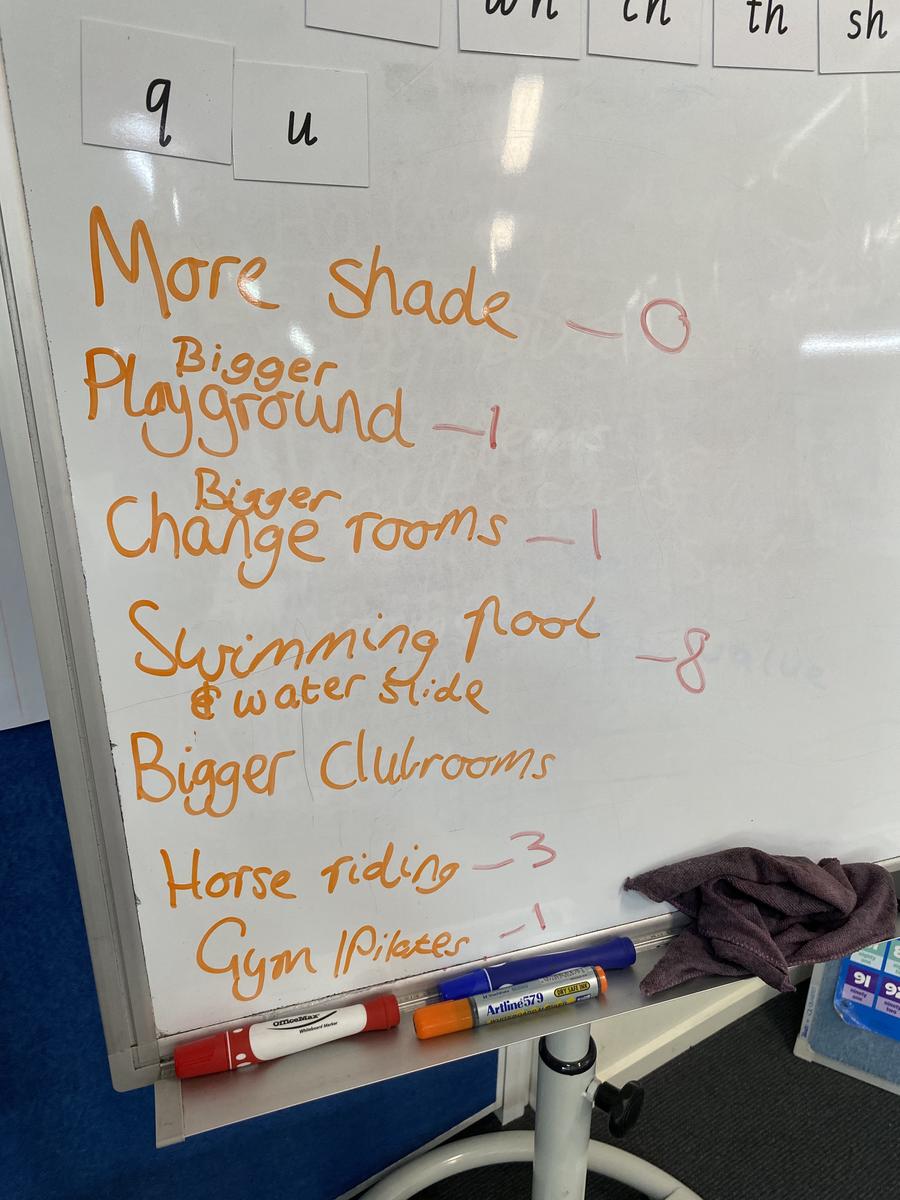 wh ch th sh
q u
More shade – 0
Bigger
Playground – 1
Bigger
Change rooms – 1
Swimming pool – 8
& water slide
Bigger Clubrooms
Horse riding – 3
Gym / Pilates – 1
OfficeMax
Whiteboard Marker
Artline 579
WHITEBOARD MARKER